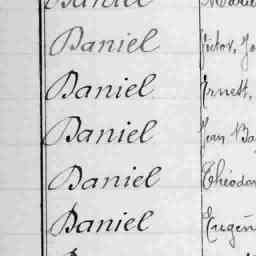 Daniel
Daniel Victor, Jo
Daniel Ernest,
Daniel Jean Ba
Daniel Théodor
Daniel Eugèn